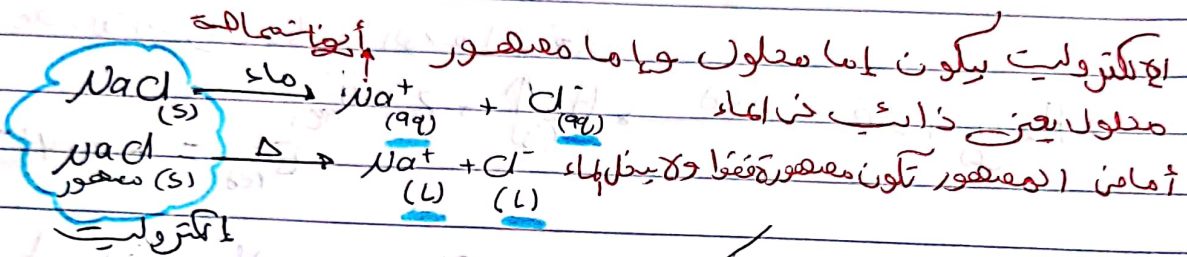 الإلكتروليت بيكون إما محلول وإما مصهور أيونات مماهة
NaCl (s) —ماء→ Na+ (aq) + Cl- (aq) محلول يعني ذائب في الماء
NaCl (s) مصهور —Δ→ Na+ (L) + Cl- (L) أما في المصهور تكون مصهورة فقط ولا يدخل الماء
إلكتروليت